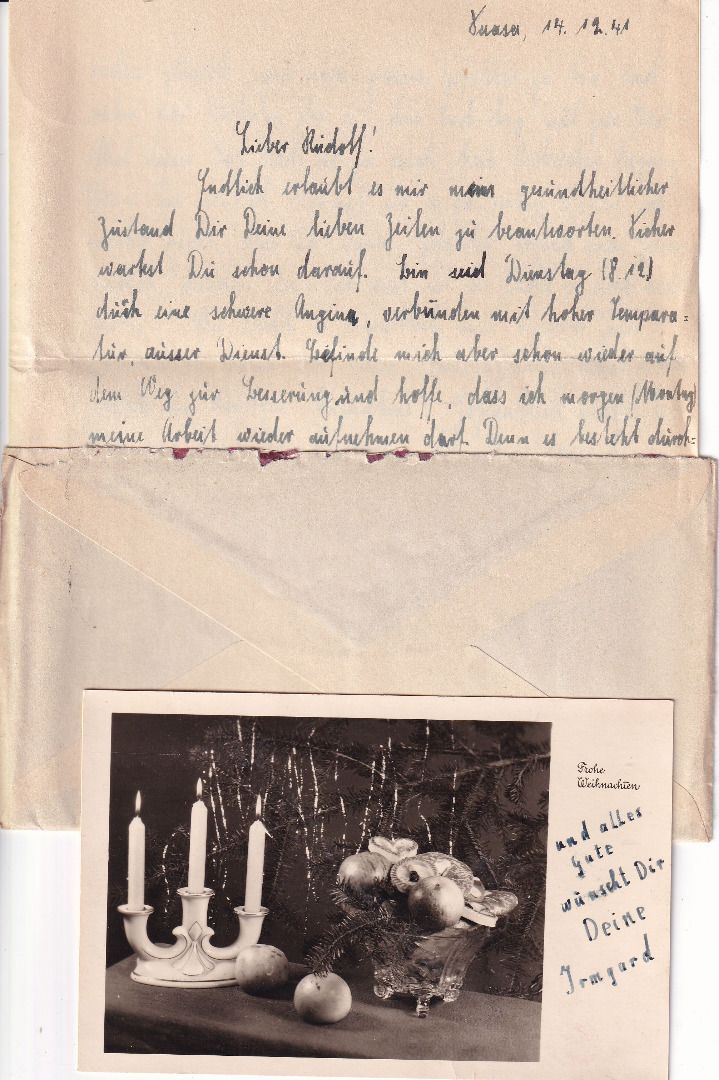 Vaasa, 14. 12. 41
Lieber Rudolf!
Endlich erlaubt es mir mein gesundheitlicher
Zustand Dir Deine lieben Zeilen zu beantworten. Sicher
wartest Du schon darauf. Bin seid Dienstag (8.12)
durch eine schwere Angina, verbunden mit hoher Tempara=
tur, ausser Dienst. Befinde mich aber schon wieder auf
dem Weg zur Besserung und hoffe, dass ich morgen (Montag)
meine Arbeit wieder aufnehmen darf. Denn es besteht durch=
Frohe
Weihnachten
und alles
Gute
wünscht Dir
Deine
Irmgard